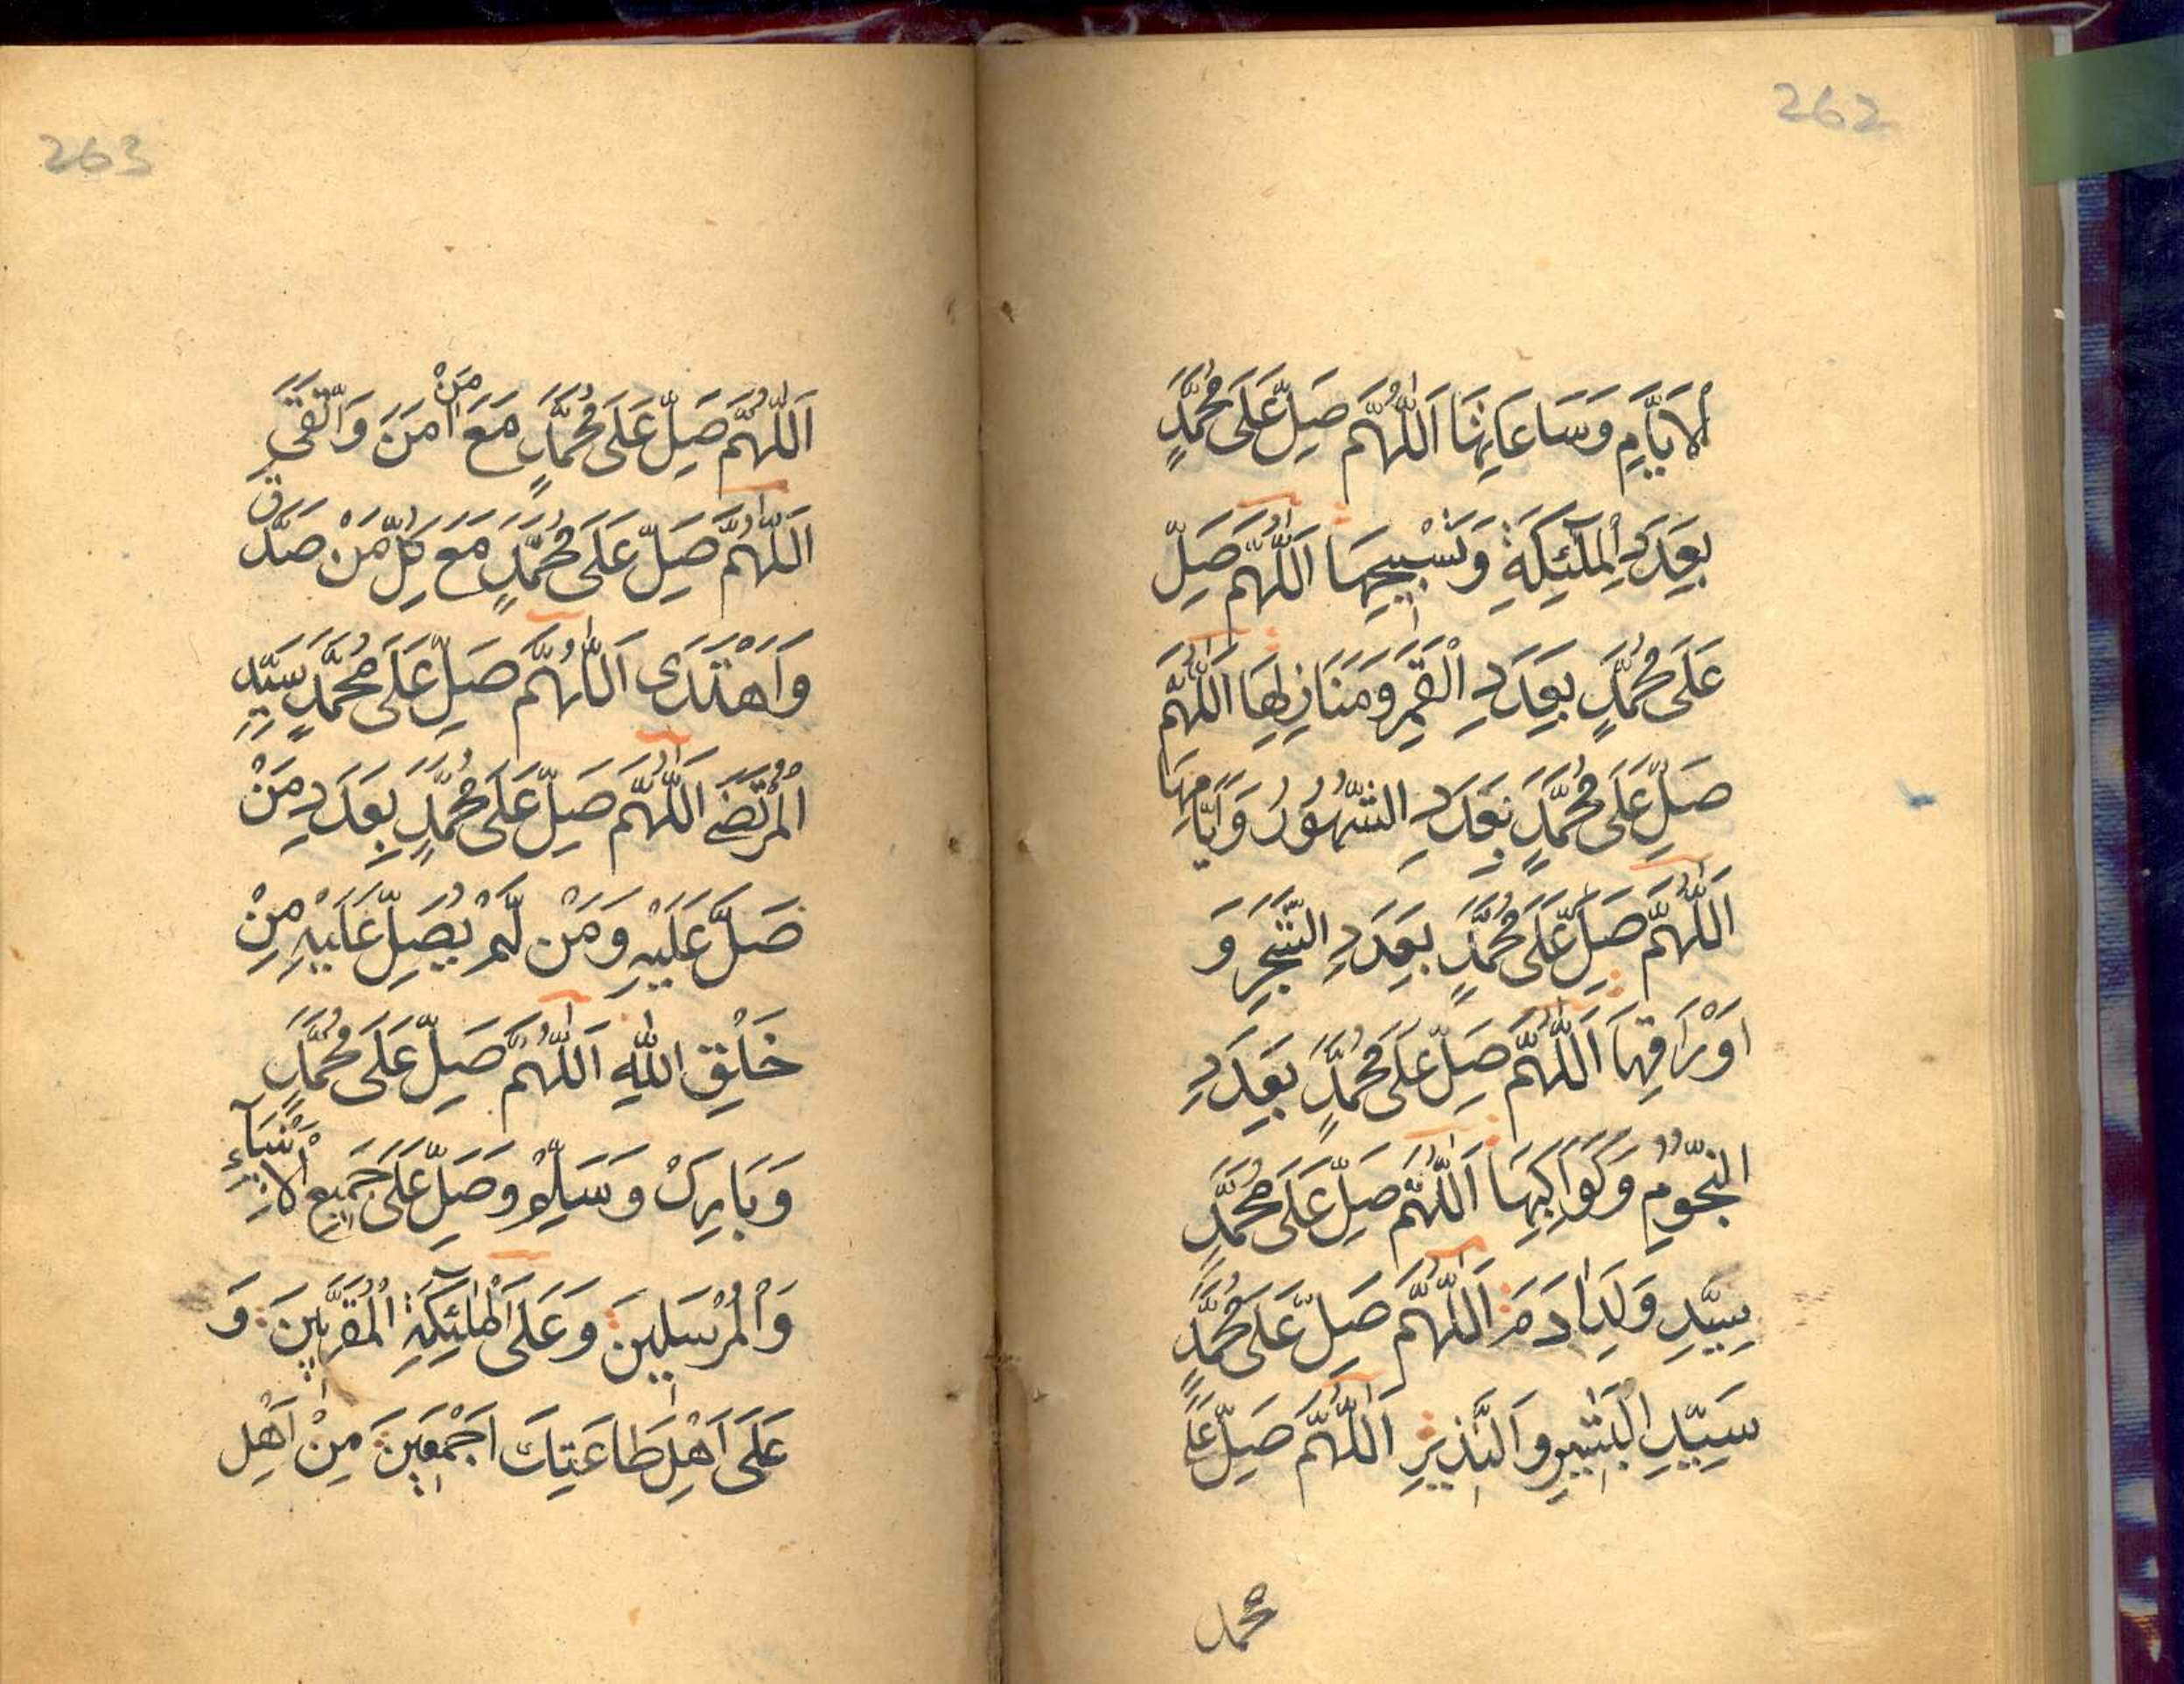 262
اَلْاَيَّامِ وَسَاعَاتِهَا اَللّٰهُمَّ صَلِّ عَلَى مُحَمَّدٍ
بِعَدَدِ الْمَلٰٓئِكَةِ وَتَسْبِيحِهَا اَللّٰهُمَّ صَلِّ
عَلَى مُحَمَّدٍ بِعَدَدِ الْقَمَرِ وَمَنَازِلِهَا اَللّٰهُمَّ
صَلِّ عَلَى مُحَمَّدٍ بِعَدَدِ الشُّهُورُ وَاَيَّامِهَا
اَللّٰهُمَّ صَلِّ عَلَى مُحَمَّدٍ بِعَدَدِ الشَّجَرِ وَ
اَوْرَاقِهَا اَللّٰهُمَّ صَلِّ عَلَى مُحَمَّدٍ بِعَدَدِ
النُّجُومِ وَكَوَاكِبِهَا اَللّٰهُمَّ صَلِّ عَلَى مُحَمَّدٍ
سَيِّدِ وَلَدِ اٰدَمَ اَللّٰهُمَّ صَلِّ عَلَى مُحَمَّدٍ
سَيِّدِ الْبَشِيرِ وَالنَّذِيرِ اَللّٰهُمَّ صَلِّ عَلَى
محمد
263
اَللّٰهُمَّ صَلِّ عَلَى مُحَمَّدٍ مَعَ مَنْ اٰمَنَ وَاتَّقَى
اَللّٰهُمَّ صَلِّ عَلَى مُحَمَّدٍ مَعَ كُلِّ مَنْ صَدَّقَ
وَاَهْتَدَى اَللّٰهُمَّ صَلِّ عَلَى مُحَمَّدٍ سَيِّدِ
الْمُرْتَضَى اَللّٰهُمَّ صَلِّ عَلَى مُحَمَّدٍ بِعَدَدِ مَنْ
صَلَّ عَلَيْهِ وَمَنْ لَمْ يُصَلِّ عَلَيْهِ مِنْ
خَلْقِ اللّٰهِ اَللّٰهُمَّ صَلِّ عَلَى مُحَمَّدٍ
وَبَارِكْ وَسَلِّمْ وَصَلِّ عَلَى جَمِيعِ الْاَنْبِيَآءِ
وَالْمُرْسَلِينَ وَعَلَى الْمَلٰٓئِكَةِ الْمُقَرَّبِينَ وَ
عَلَى اَهْلِ طَاعَتِكَ اَجْمَعِينَ مِنْ اَهْلِ